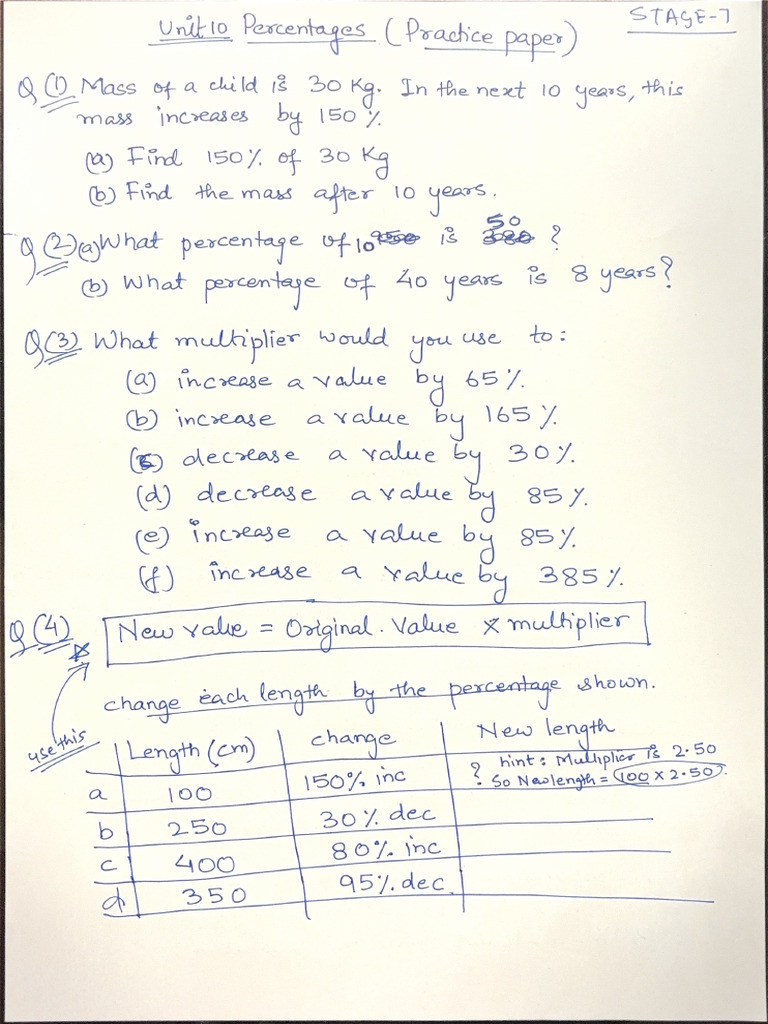 STAGE-7
Unit 10 Percentages (Practice paper)
Q (1) Mass of a child is 30 Kg. In the next 10 years, this
mass increases by 150 %.
(a) Find 150% of 30 Kg
(b) Find the mass after 10 years.
Q (2) (a) What percentage of 10 is 50 ?
(b) What percentage of 40 years is 8 years?
Q (3) What multiplier would you use to:
(a) increase a value by 65%.
(b) increase a value by 165 %.
decrease a value by 30%.
(d) decrease a value by 85%.
(e) increase a value by 85%.
(f) increase a value by 385 %.
Q (4) New value = Original. Value × multiplier
use this
change each length by the percentage shown.
Length (cm) change New length
a 100 150% inc ? hint: Multiplier is 2.50
So New length = 100 × 2.50.
b 250 30% dec
c 400 80% inc
d 350 95%. dec.